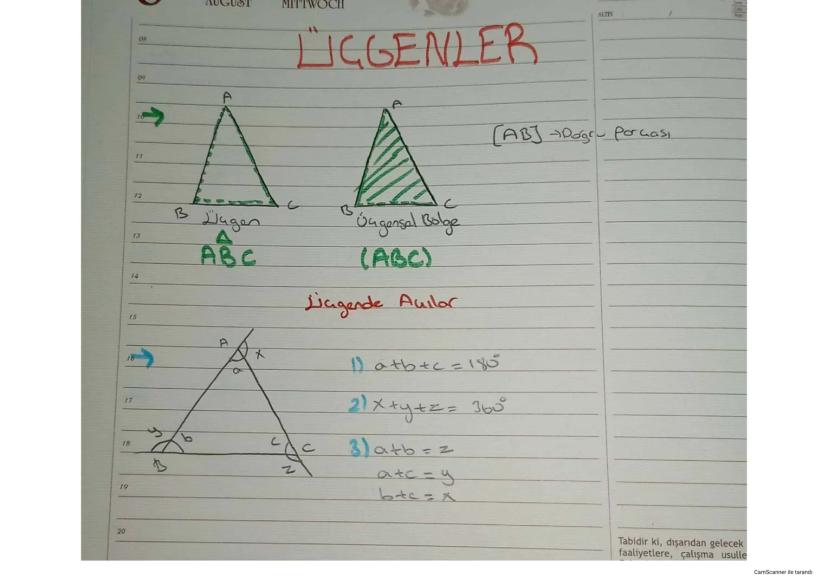 AUGUST MITTWOCH
ÜÇGENLER
08
09
10
11
12
13
14
15
16
17
18
19
20
A
B C
Üçgen
ABC
A
B C
Üçgensel Bölge
(ABC)
[AB] → Doğru Parçası
Üçgende Açılar
A x
a
y b
B
c C
z
1) a+b+c = 180°
2) x+y+z = 360°
3) a+b = z
a+c = y
b+c = x
Tabidir ki, dışarıdan gelecek
faaliyetlere, çalışma usulle
CamScanner ile tarandı